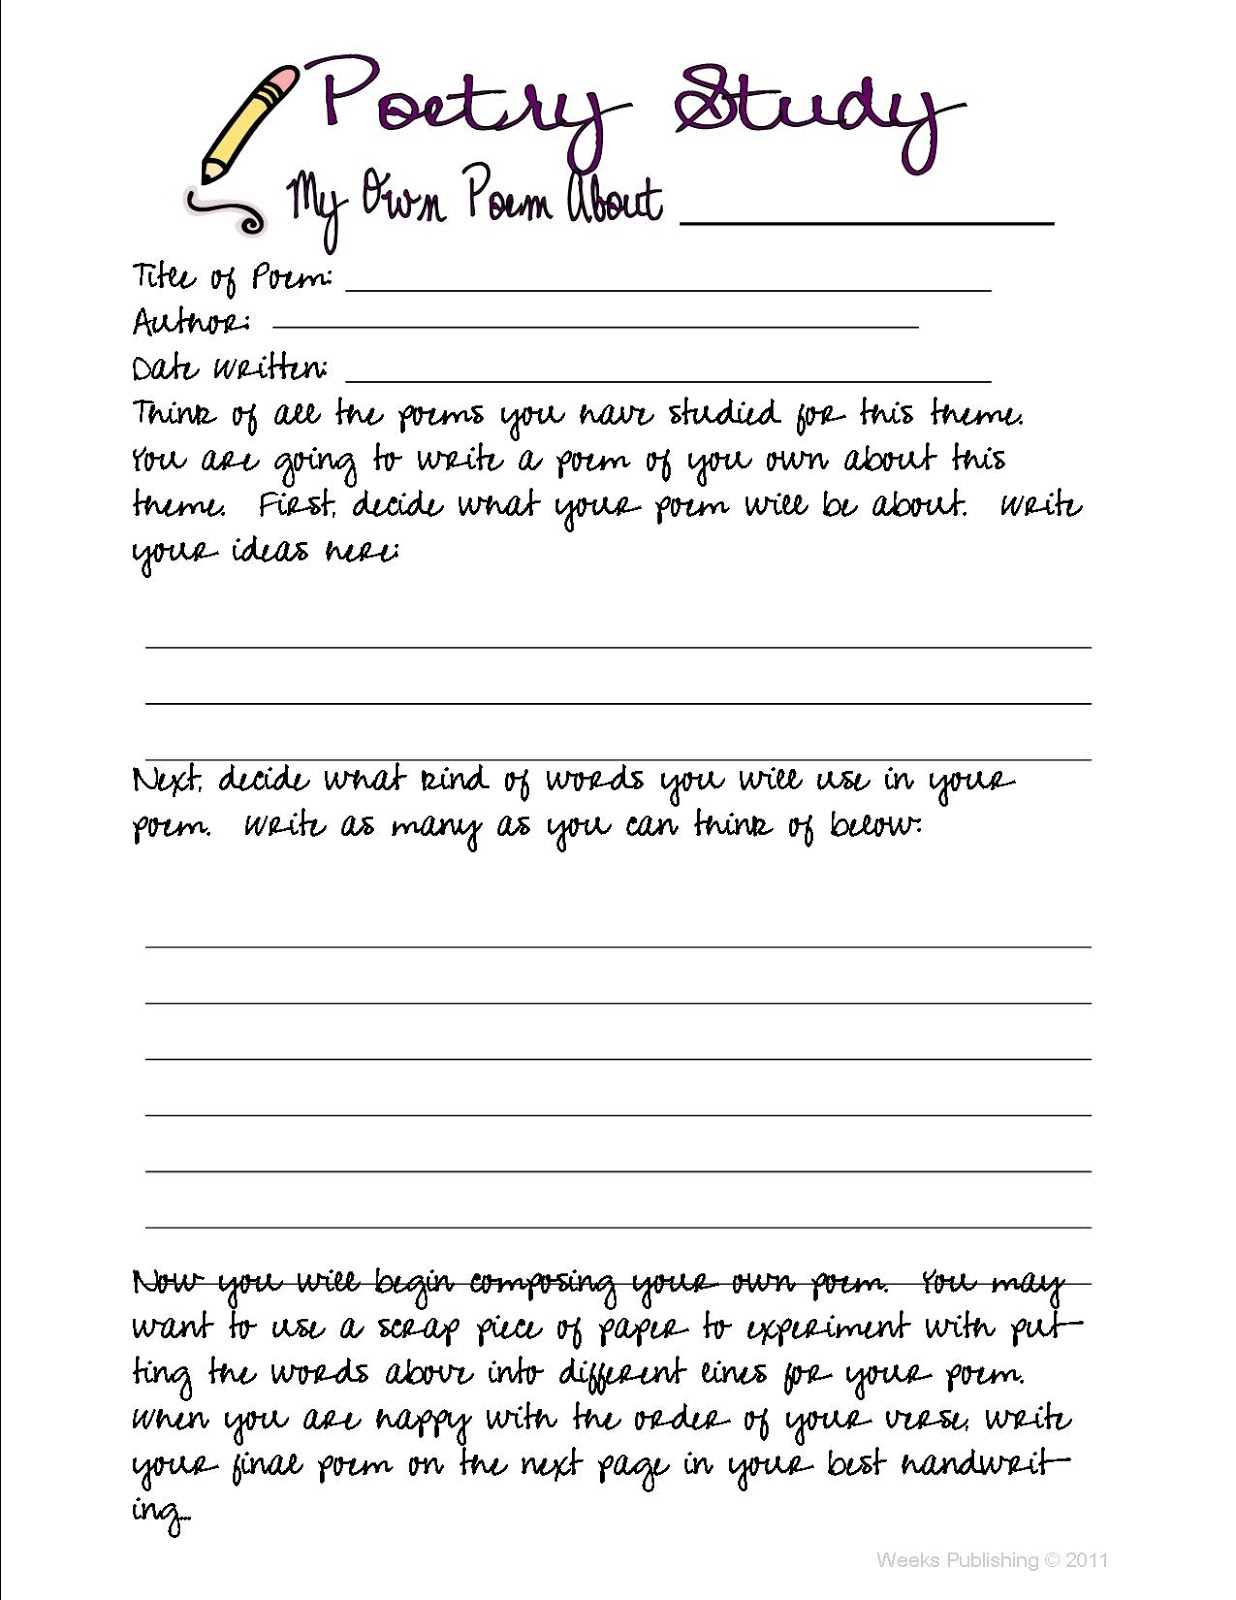 Poetry Study
My Own Poem About
Title of Poem:
Author:
Date Written:
Think of all the poems you have studied for this theme.
You are going to write a poem of you own about this
theme. First, decide what your poem will be about. Write
your ideas here:
Next, decide what kind of words you will use in your
poem. Write as many as you can think of below:
Now you will begin composing your own poem. You may
want to use a scrap piece of paper to experiment with put-
ting the words above into different lines for your poem.
When you are happy with the order of your verse, write
your final poem on the next page in your best handwrit-
ing...
Weeks Publishing © 2011